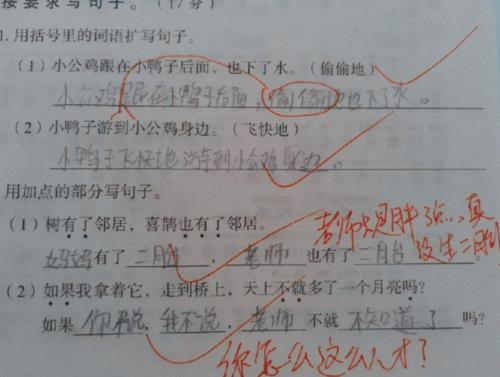 按要求写句子。(17分)
1.用括号里的词语扩写句子。
(1)小公鸡跟在小鸭子后面,也下了水。(偷偷地)
小公鸡跟在小鸭子后面,偷偷地也下了水。
(2)小鸭子游到小公鸡身边。(飞快地)
小鸭子飞快地游到小公鸡身边。
用加点的部分写句子。
(1)树有了邻居,喜鹊也有了邻居。
老师只是胖了点,真没生二胎
妈妈有了二胎,老师也有了二胎。
(2)如果我拿着它,走到桥上,天上不就多了一个月亮吗?
如果你不说,我不说,老师不就不知道了吗?
你怎么这么人才?